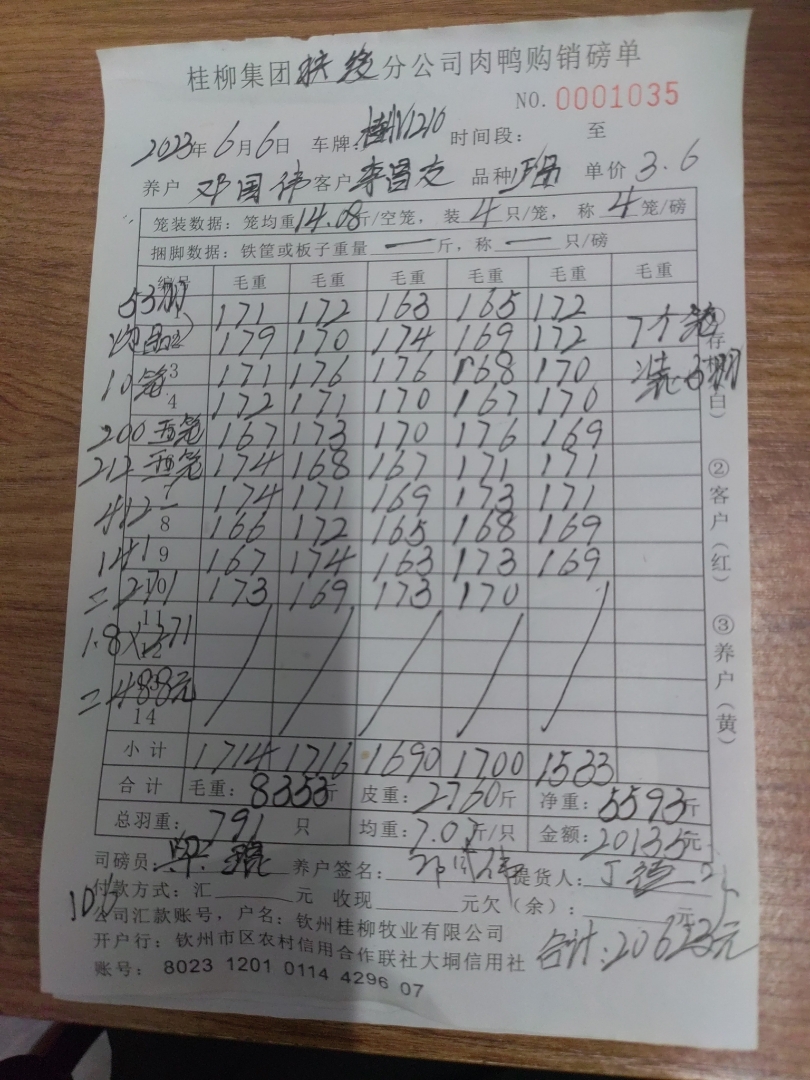 桂柳集团扶绥分公司肉鸭购销磅单
NO.0001035
2023年6月6日 车牌:桂N1210 时间段: 至
养户 邓国伟 客户 李昌友 品种 单价 3.6
笼装数据:笼均重14.08斤/空笼,装4只/笼,称4笼/磅
捆脚数据:铁筐或板子重量一斤,称一只/磅
编号 毛重 毛重 毛重 毛重 毛重 毛重
53 171 172 163 165 172
179 170 174 169 172 7个笼
10笼 3 171 176 176 168 170 装
4 172 171 170 167 170
200 笼 167 173 170 176 169
212 笼 174 168 167 171 171
412- 7 174 171 169 173 171
8 166 172 165 168 169
141 9 167 174 163 173 169
=271 10 173 169 173 170
11
1.8×271 12
=488元
14
小计 1714 1716 1690 1700 1533
合计 毛重:8353斤 皮重:2760斤 净重:5593斤
总羽重:791只 均重:7.07斤/只 金额:20135元
司磅员: 养户签名:邓国伟 提货人:
付款方式:汇 元 收现 元欠(余): 元
公司汇款账号,户名:钦州桂柳牧业有限公司
开户行:钦州市区农村信用合作联社大垌信用社 合计:20623元
账号:8023 1201 0114 4296 07
①存根(白)
②客户(红)
③养户(黄)